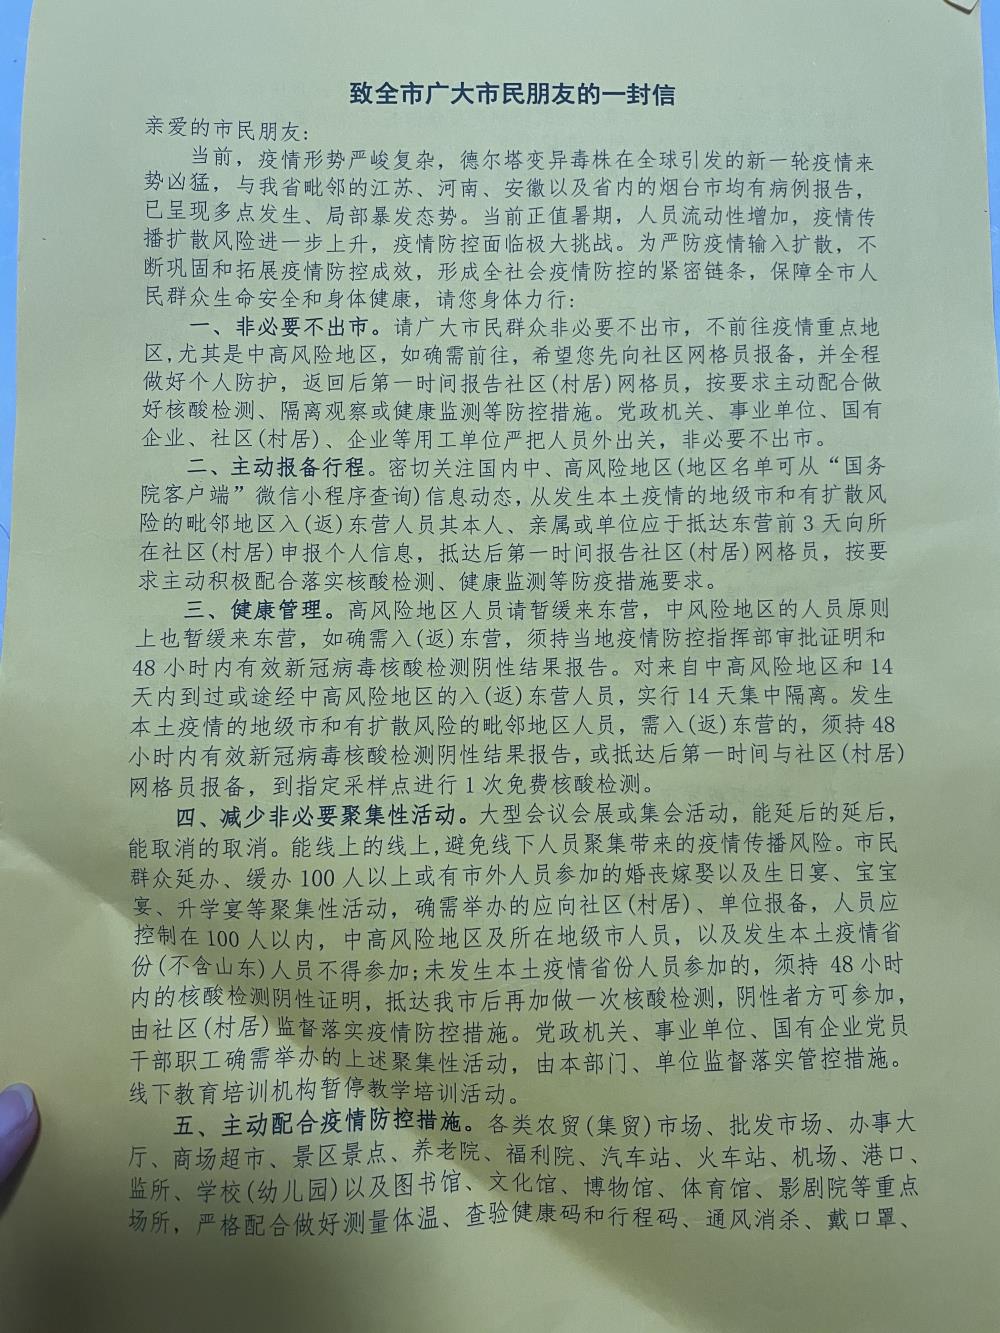 致全市广大市民朋友的一封信
亲爱的市民朋友:
当前，疫情形势严峻复杂，德尔塔变异毒株在全球引发的新一轮疫情来
势凶猛，与我省毗邻的江苏、河南、安徽以及省内的烟台市均有病例报告，
已呈现多点发生、局部暴发态势。当前正值暑期，人员流动性增加，疫情传
播扩散风险进一步上升，疫情防控面临极大挑战。为严防疫情输入扩散，不
断巩固和拓展疫情防控成效，形成全社会疫情防控的紧密链条，保障全市人
民群众生命安全和身体健康，请您身体力行:
一、非必要不出市。请广大市民群众非必要不出市，不前往疫情重点地
区,尤其是中高风险地区，如确需前往，希望您先向社区网格员报备，并全程
做好个人防护，返回后第一时间报告社区(村居)网格员，按要求主动配合做
好核酸检测、隔离观察或健康监测等防控措施。党政机关、事业单位、国有
企业、社区(村居)、企业等用工单位严把人员外出关，非必要不出市。
二、主动报备行程。密切关注国内中、高风险地区(地区名单可从“国务
院客户端”微信小程序查询)信息动态,从发生本土疫情的地级市和有扩散风
险的毗邻地区入(返)东营人员其本人、亲属或单位应于抵达东营前3天向所
在社区(村居)申报个人信息，抵达后第一时间报告社区(村居)网格员，按要
求主动积极配合落实核酸检测、健康监测等防疫措施要求。
三、健康管理。高风险地区人员请暂缓来东营，中风险地区的人员原则
上也暂缓来东营，如确需入(返)东营，须持当地疫情防控指挥部审批证明和
48小时内有效新冠病毒核酸检测阴性结果报告。对来自中高风险地区和14
天内到过或途经中高风险地区的入(返)东营人员，实行14天集中隔离。发生
本土疫情的地级市和有扩散风险的毗邻地区人员，需入(返)东营的，须持48
小时内有效新冠病毒核酸检测阴性结果报告,或抵达后第一时间与社区(村居)
网格员报备，到指定采样点进行1次免费核酸检测。
四、减少非必要聚集性活动。大型会议会展或集会活动，能延后的延后，
能取消的取消。能线上的线上,避免线下人员聚集带来的疫情传播风险。市民
群众延办、缓办100人以上或有市外人员参加的婚丧嫁娶以及生日宴、宝宝
宴、升学宴等聚集性活动，确需举办的应向社区(村居)、单位报备，人员应
控制在100人以内，中高风险地区及所在地级市人员，以及发生本土疫情省
份(不含山东)人员不得参加;未发生本土疫情省份人员参加的，须持 48小时
内的核酸检测阴性证明，抵达我市后再加做一次核酸检测，阴性者方可参加，
由社区(村居)监督落实疫情防控措施。党政机关、事业单位、国有企业党员
干部职工确需举办的上述聚集性活动，由本部门、单位监督落实管控措施。
线下教育培训机构暂停教学培训活动。
五、主动配合疫情防控措施。各类农贸(集贸)市场、批发市场、办事大
厅、商场超市、景区景点、养老院、福利院、汽车站、火车站、机场、港口、
监所、学校(幼儿园)以及图书馆、文化馆、博物馆、体育馆、影剧院等重点
场所，严格配合做好测量体温、查验健康码和行程码、通风消杀、戴口罩、